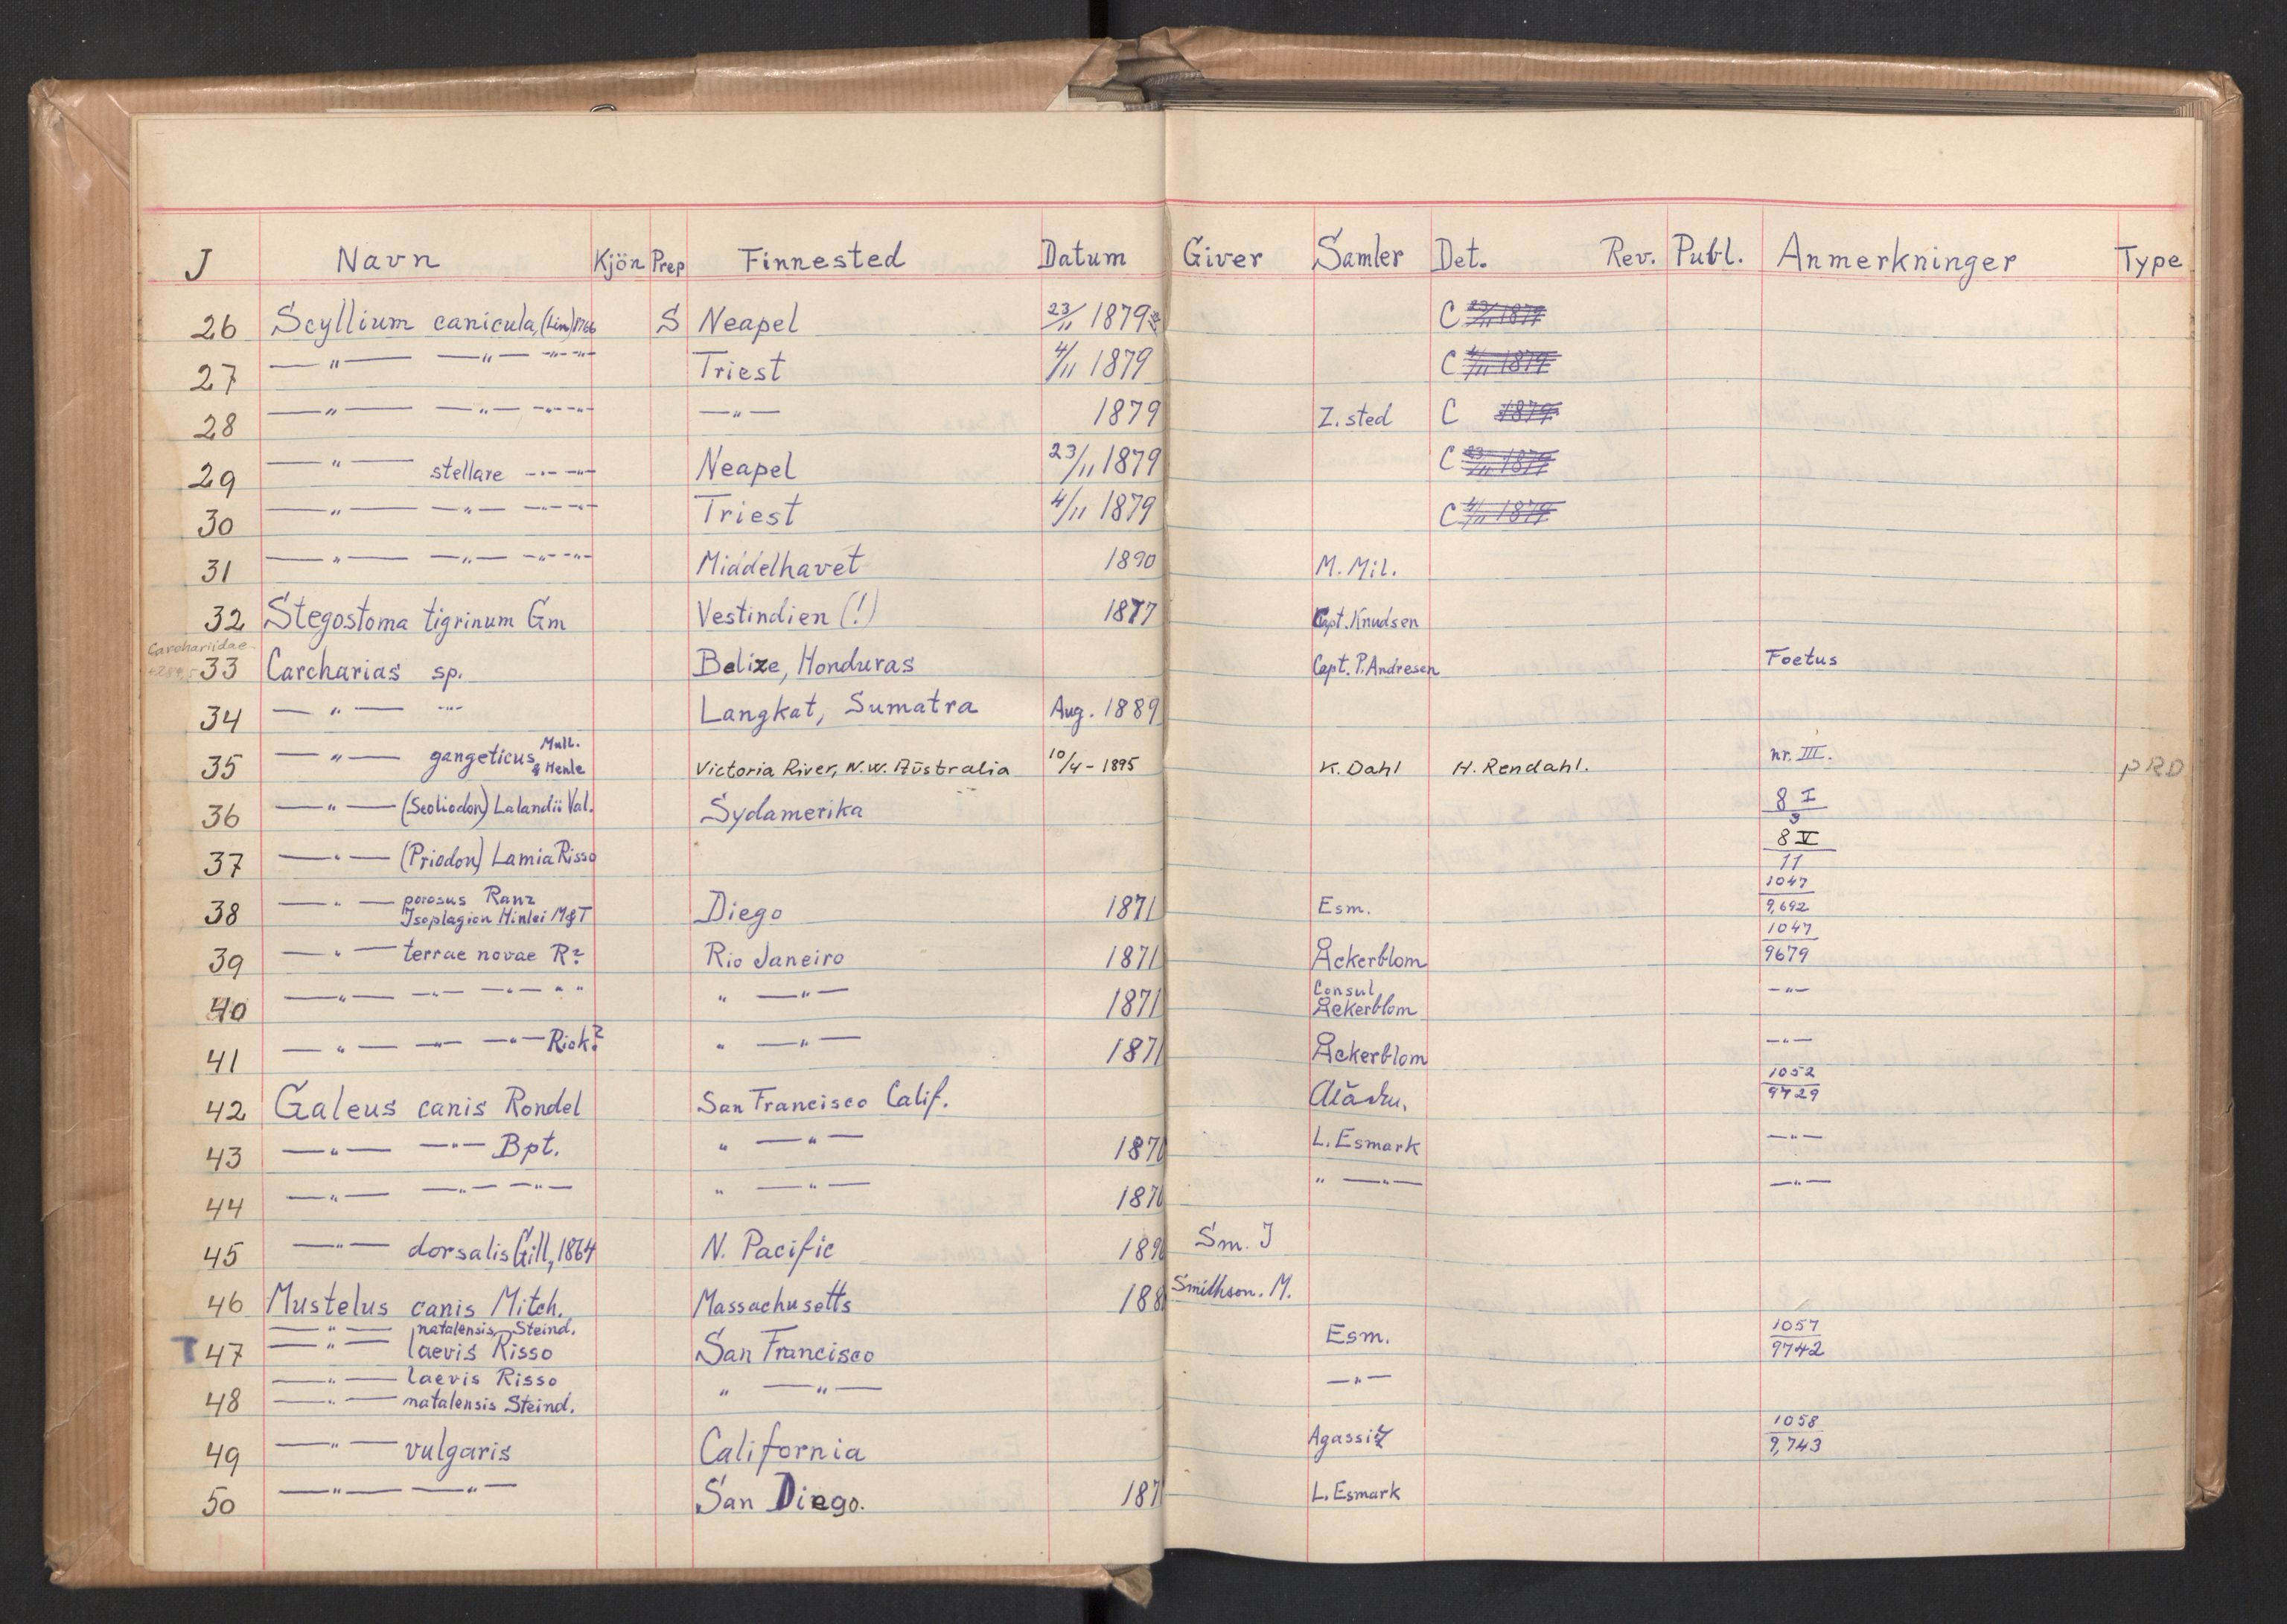 J Navn Kjön Prep Finnested Datum Giver Samler Det. Rev. Publ. Anmerkninger Type
26 Scyllium canicula, (Lin) 1766 S Neapel 23/11 1879 C 23/11 1879
27 —〃— —〃— -〃- -〃- Triest 4/11 1879 C 4/11 1879
28 —〃— —〃— -〃- -〃- —〃— 1879 Z. sted C 1879
29 —〃— stellare -〃- -〃- Neapel 23/11 1879 C 23/11 1879
30 —〃— —〃— -〃- -〃- Triest 4/11 1879 C 4/11 1879
31 —〃— —〃— -〃- -〃- Middelhavet 1890 M. Mil.
32 Stegostoma tigrinum Gm Vestindien (!) 1877 Capt. Knudsen
Carchariidae
33 Carcharias sp. Belize, Honduras Capt. P. Andresen Foetus
34 —〃— -〃- Langkat, Sumatra Aug. 1889
35 —〃— gangeticus Mull. & Henle Victoria River, N.W. Australia 10/4 - 1895 K. Dahl H. Rendahl. nr. III. pRD
36 —〃— (Scoliodon) Lalandii Val. Sydamerika 8 I / 9
37 —〃— (Priodon) Lamia Risso 8 V / 11
38 —〃— porosus Ranz Diego 1871 Esm. 1047 / 9,692
Isoplagion Hinlei M&T
39 —〃— terrae novae R? Rio Janeiro 1871 Åckerblom 1047 / 9679
40 —〃— —〃— —〃— 〃 〃 〃 —〃— 1871 Consul Åckerblom —〃—
41 —〃— —〃— —〃— Rick? 〃 —〃— 1871 Åckerblom —〃—
42 Galeus canis Rondel San Francisco Calif. 1052 / 9729
43 —〃— —〃— Bpt. 〃 —〃— 187 L. Esmark —〃—
44 —〃— —〃— —〃— 〃 —〃— 187 〃 —〃— —〃—
45 —〃— dorsalis Gill, 1864 N. Pacific 189 Sm. J
46 Mustelus canis Mitch. Massachusetts 188 Smithson. M.
—〃— natalensis, Steind.
T 47 —〃— laevis Risso San Francisco Esm. 1057 / 9742
—〃— laevis Risso
48 —〃— natalensis Steind. 〃 —〃— —〃—
49 —〃— vulgaris California Agassiz 1058 / 9,743
50 —〃— —〃— San Diego. 187 L. Esmark